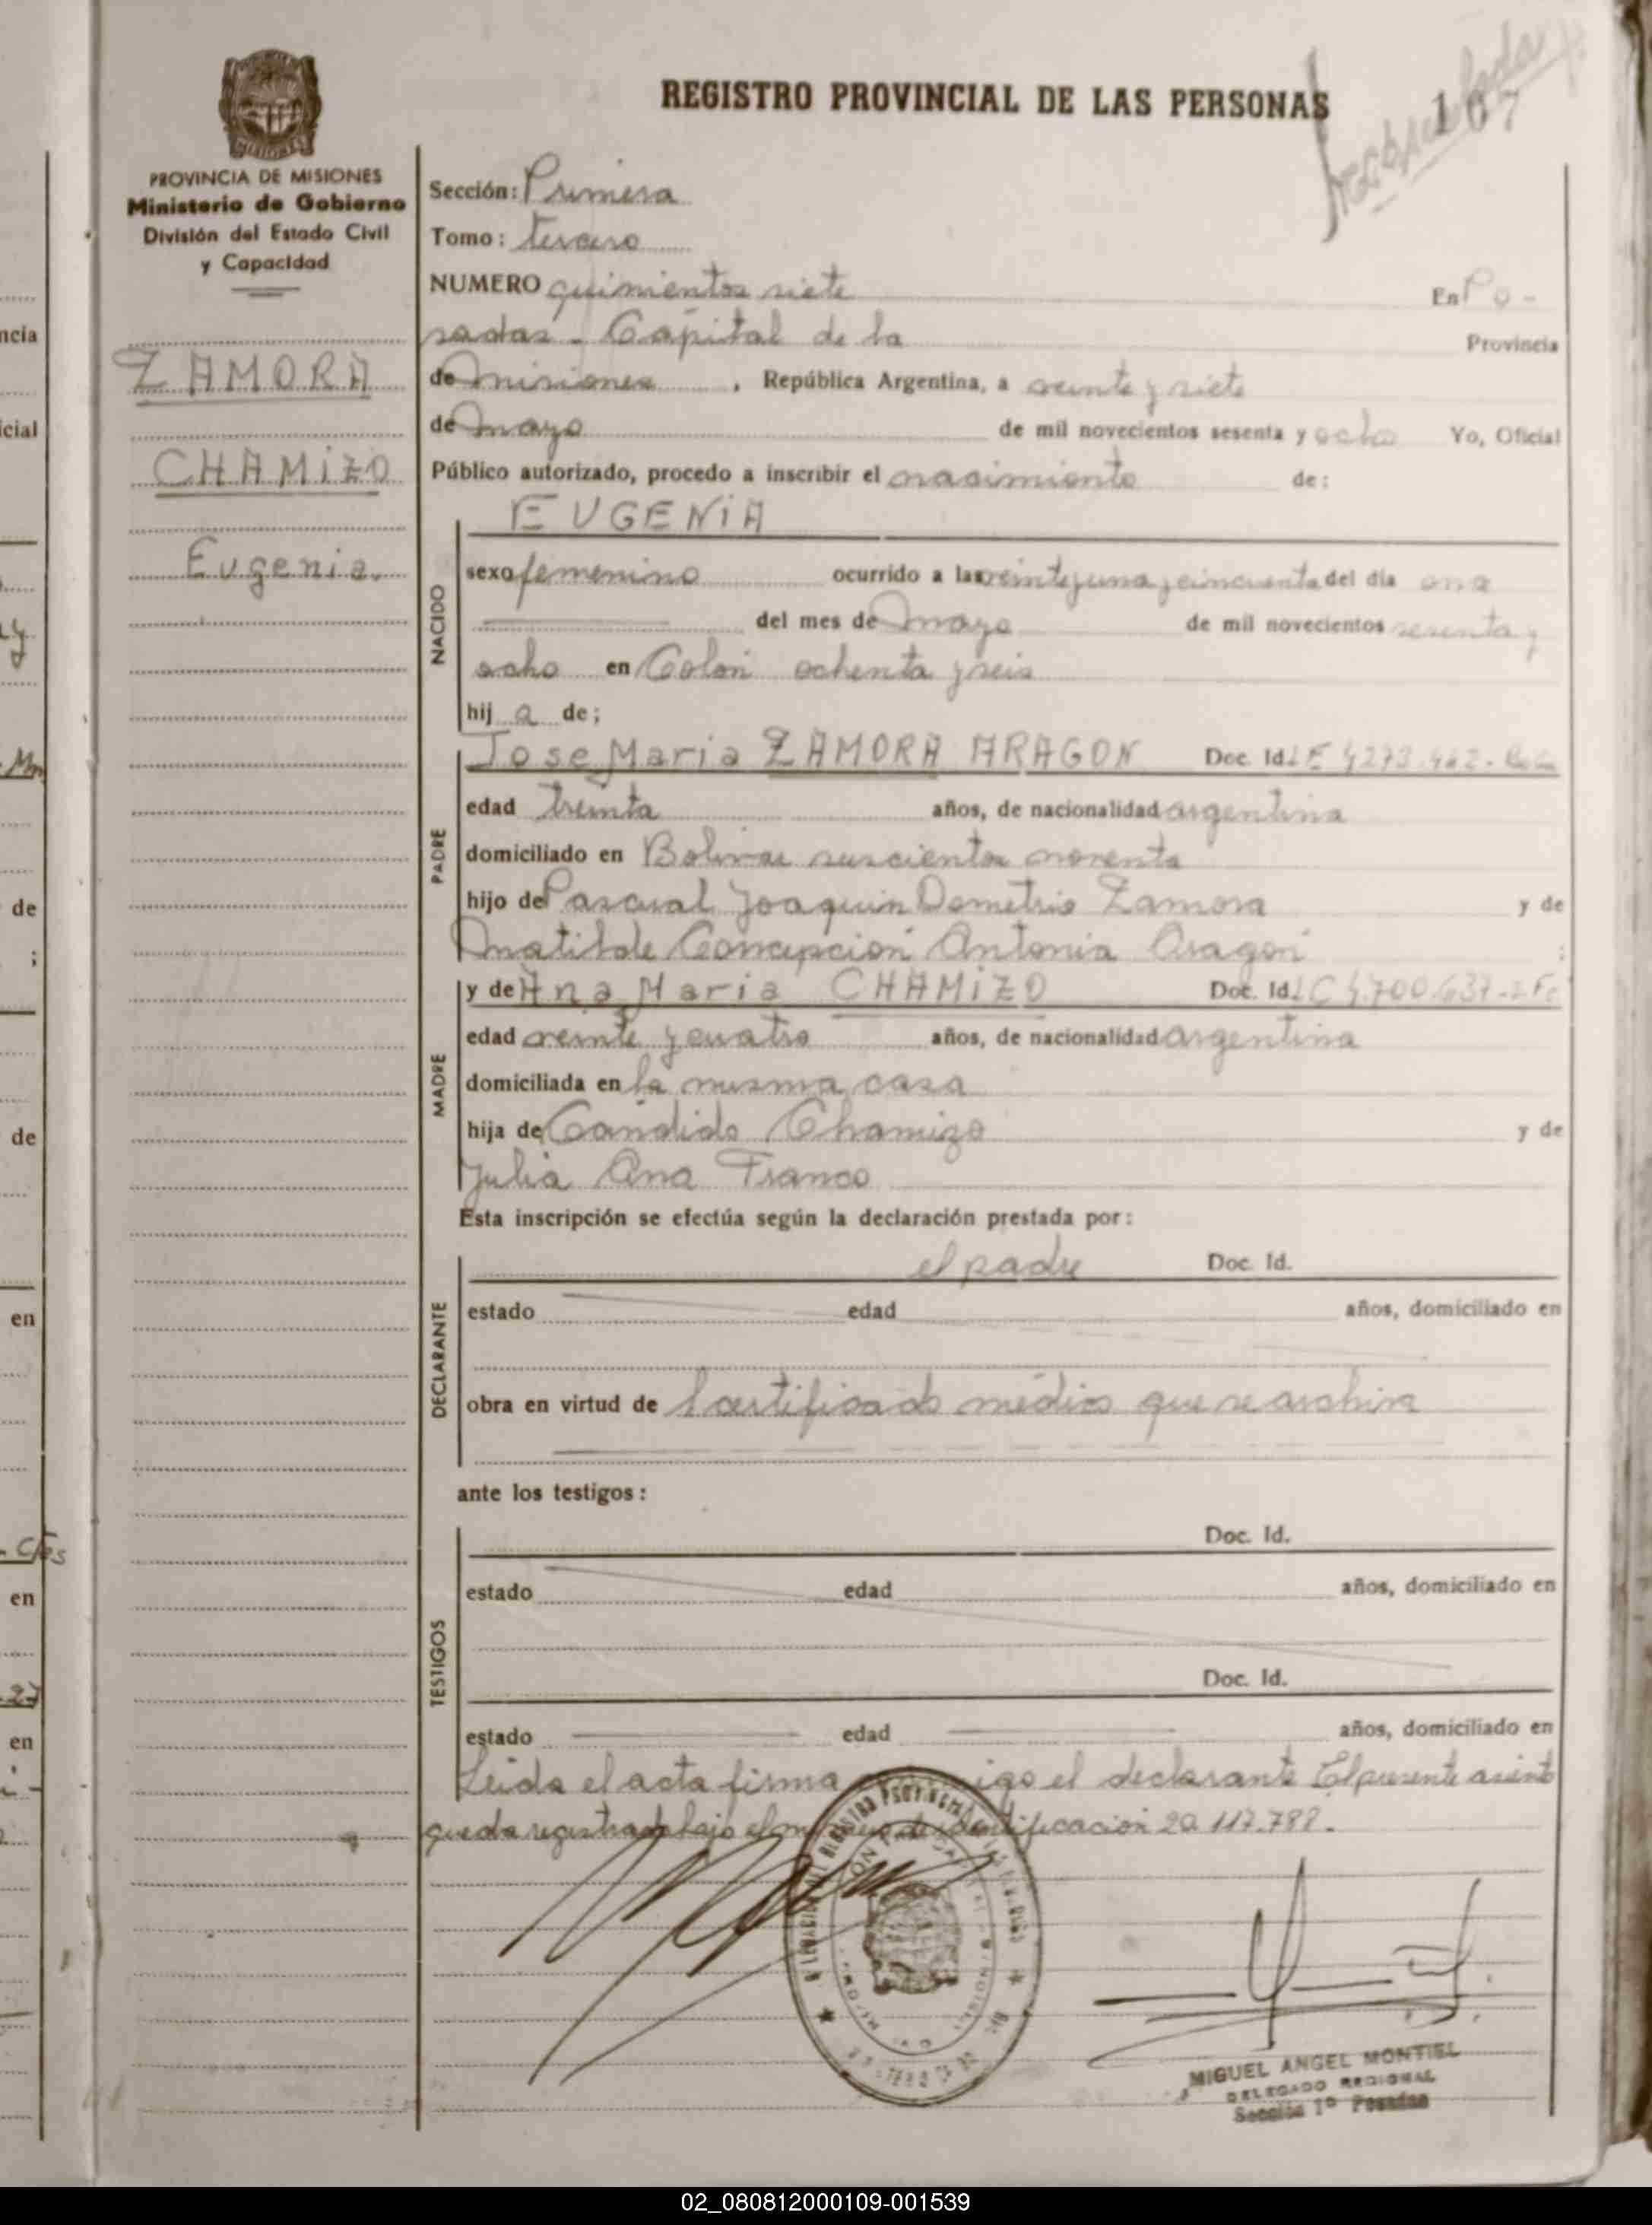 REGISTRO PROVINCIAL DE LAS PERSONAS
107
PROVINCIA DE MISIONES
Ministerio de Gobierno
División del Estado Civil
y Capacidad
ZAMORA
CHAMIZO
Eugenia.
Sección: Primera
Tomo: tercero
NUMERO quinientos siete En Po-
sadas - Capital de la Provincia
de misiones, República Argentina, a veinte y siete
de mayo de mil novecientos sesenta y ocho Yo, Oficial
Público autorizado, procedo a inscribir el nacimiento de:
NACIDO
EUGENIA
sexo femenino ocurrido a las veinte y una y cincuenta del día once
del mes de mayo de mil novecientos sesenta y
ocho en Colón ochenta y seis
hij a de;
PADRE
Jose Maria ZAMORA ARAGON Doc. Id. LE
edad treinta años, de nacionalidad argentina
domiciliado en Bolivar seiscientos noventa
hijo de Pascual Joaquin Demetrio Zamora y de
Matilde Concepcion Antonia Aragon :
MADRE
y de Ana Maria CHAMIZO Doc. Id. LC
edad veinte y cuatro años, de nacionalidad argentina
domiciliada en la misma casa
hija de Candido Chamizo y de
Julia Ana Franco
Esta inscripción se efectúa según la declaración prestada por:
DECLARANTE
el padre Doc. Id.
estado edad años, domiciliado en
obra en virtud de certificado médico que se archiva
ante los testigos:
TESTIGOS
Doc. Id.
estado edad años, domiciliado en
Doc. Id.
estado edad años, domiciliado en
Leida el acta firma igo el declarante El presente asiento
queda registrado bajo el identificacion 20.117.788.
MIGUEL ANGEL MONTIEL
DELEGADO REGIONAL
Sección 1º Posadas
ncia
icial
de
;
de
en
Cfes
en
27
en
02_080812000109-001539